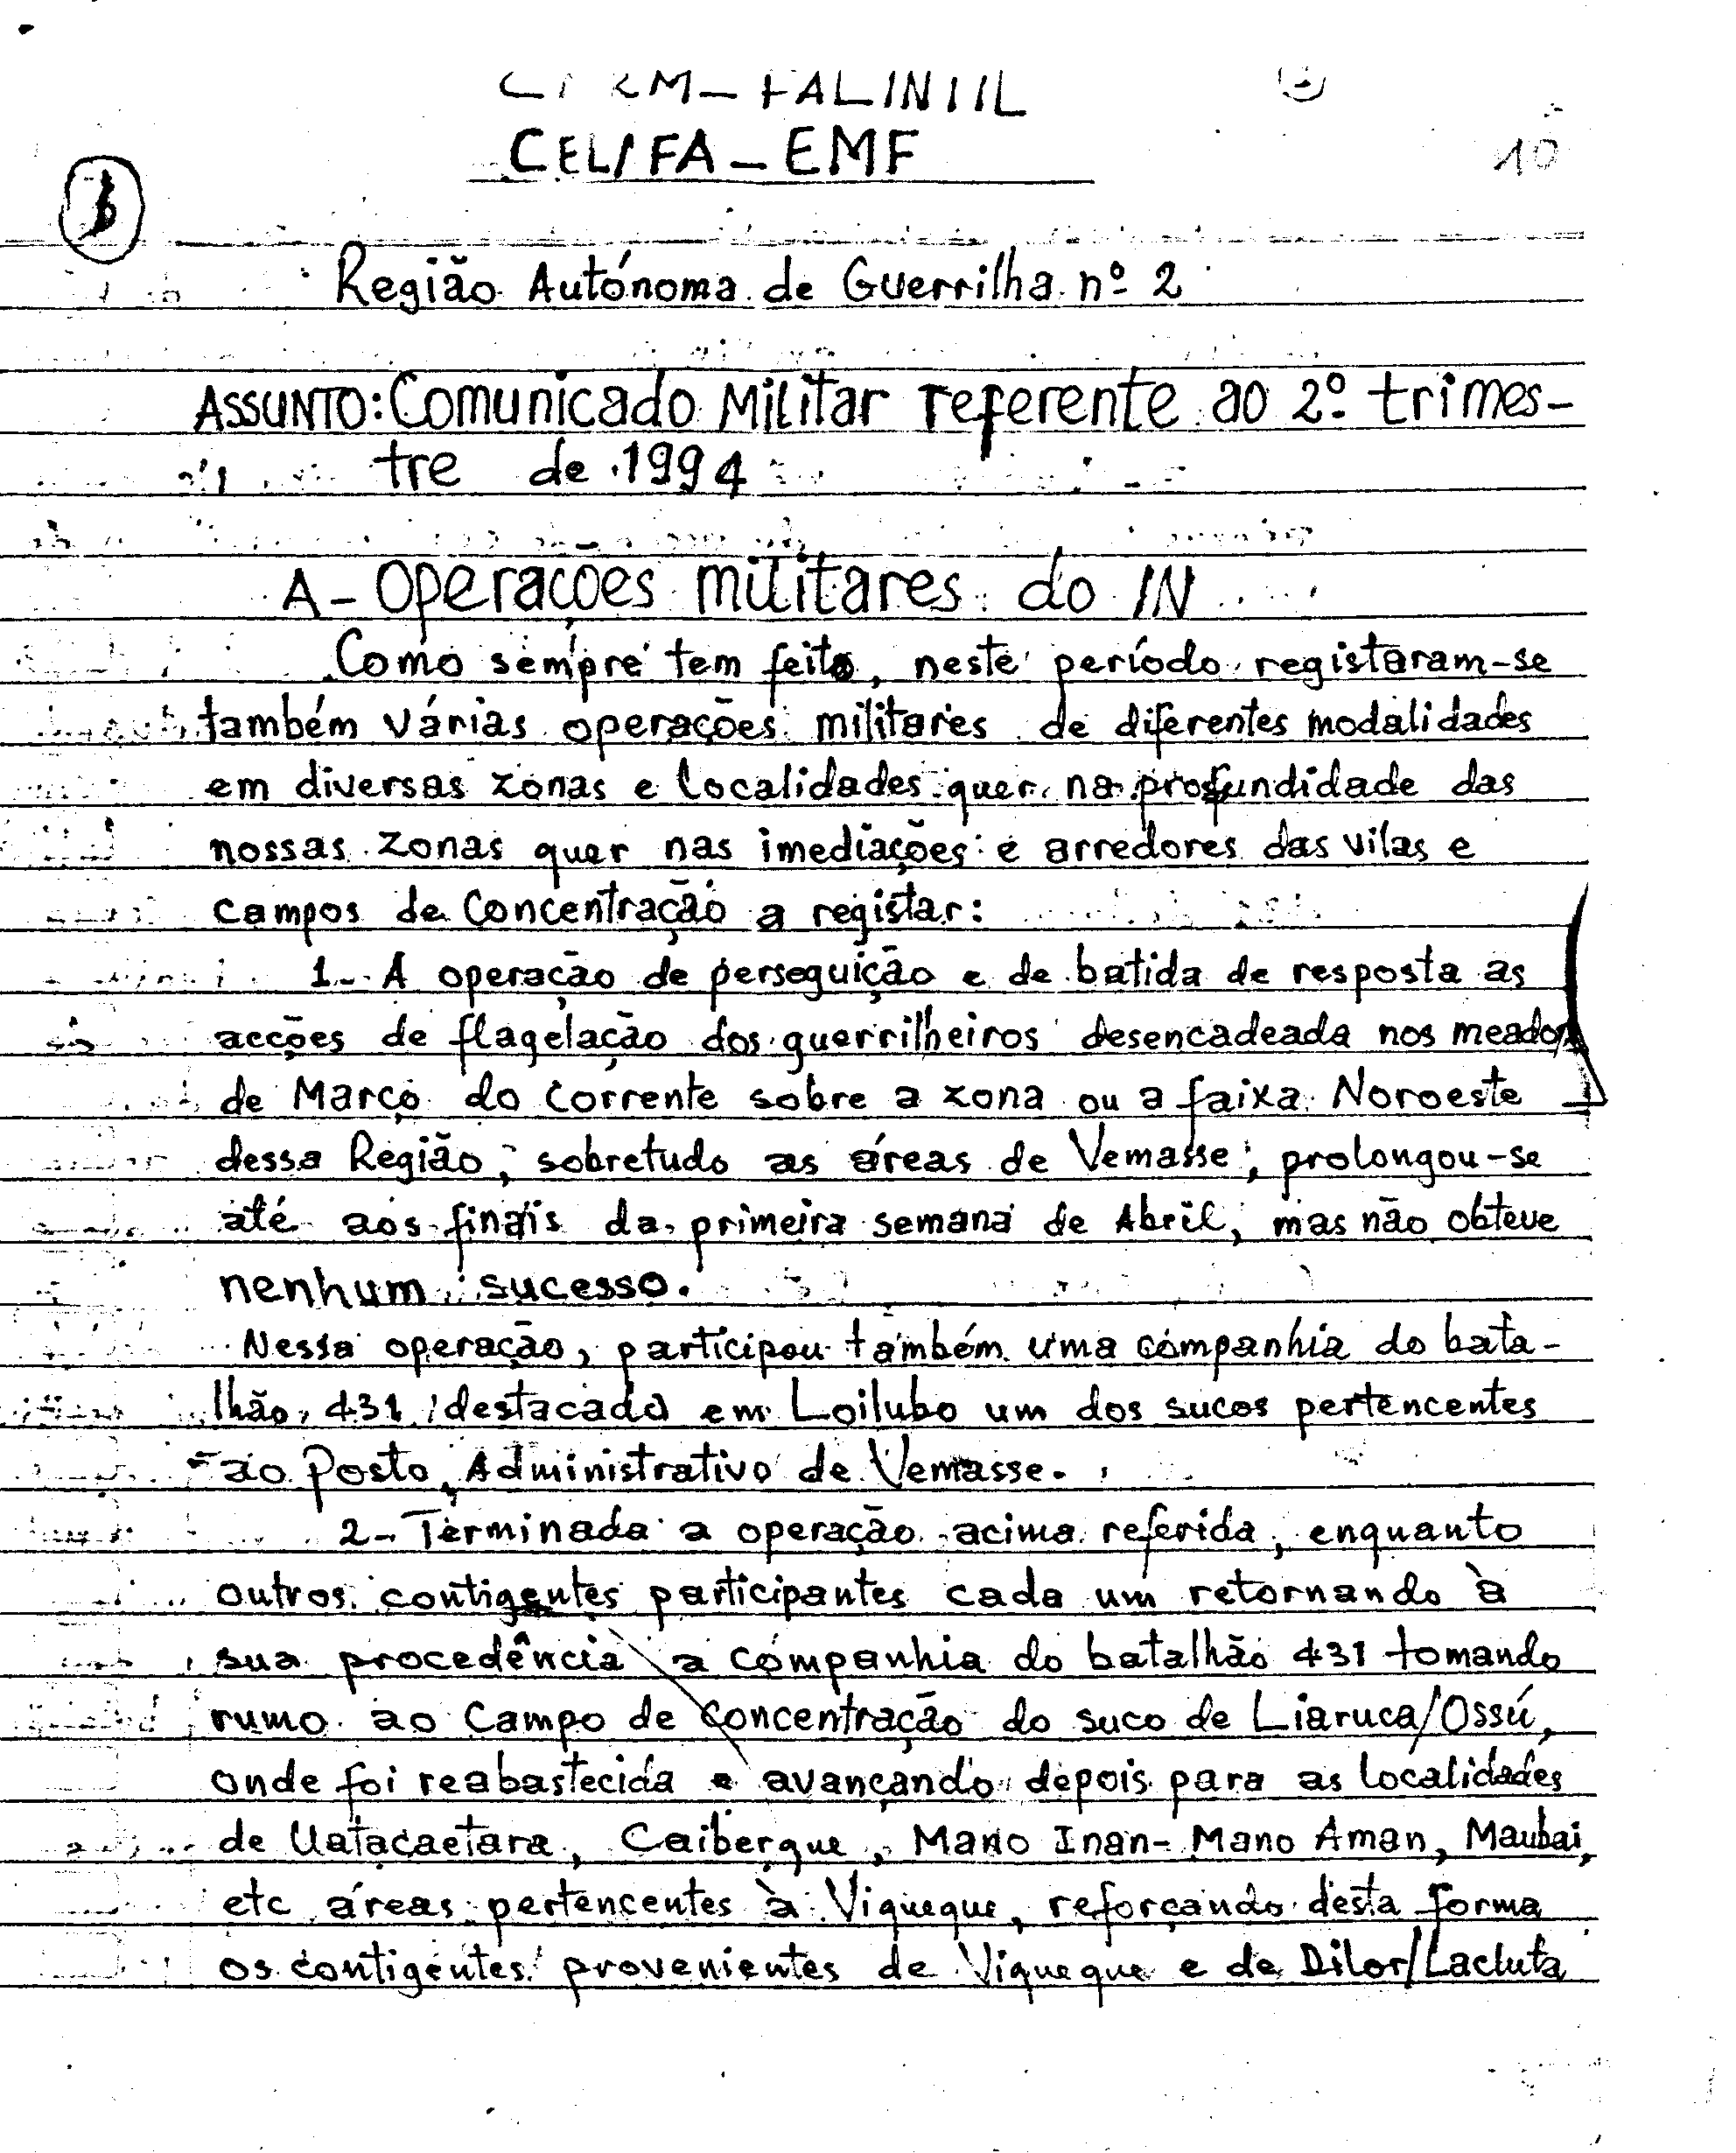 CEL/FA - EMF
10
Região Autónoma de Guerrilha nº 2
ASSUNTO: Comunicado Militar referente ao 2º trimes-
tre de 1994
A - Operações militares do IN
Como sempre tem feito, neste período registaram-se
também várias operações militares de diferentes modalidades
em diversas zonas e localidades quer na profundidade das
nossas zonas quer nas imediações e arredores das vilas e
campos de Concentração a registar:
1- A operação de perseguição e de batida de resposta as
acções de flagelação dos guerrilheiros desencadeada nos meados
de Março do corrente sobre a zona ou a faixa Noroeste
dessa Região, sobretudo as áreas de Vemasse, prolongou-se
até aos finais da primeira semana de Abril, mas não obteve
nenhum sucesso.
Nessa operação, participou também uma companhia do bata-
lhão 431 destacado em Loilubo um dos sucos pertencentes
ao Posto Administrativo de Vemasse.
2- Terminada a operação acima referida, enquanto
outros contigentes participantes cada um retornando à
sua procedência a companhia do batalhão 431 tomando
rumo ao Campo de Concentração do suco de Liaruca/Ossú,
onde foi reabastecida e avançando depois para as localidades
de Uatacaetara, Caiberque, Mano Inan- Mano Aman, Maubai,
etc áreas pertencentes à Viqueque, reforçando desta forma
os contigentes provenientes de Viqueque e de Dilor/Lacluta